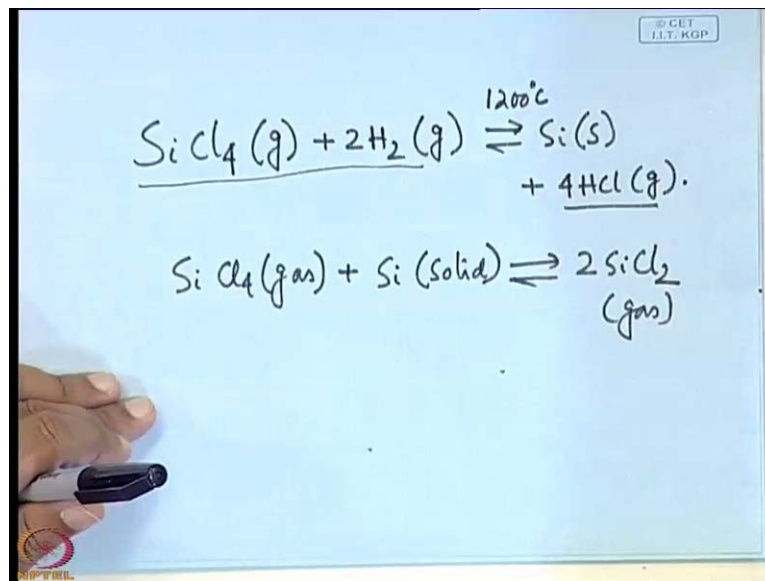 © CET
I.I.T. KGP
1200°C
SiCl4 (g) + 2H2 (g) ⇌ Si(s)
+ 4HCl (g).
SiCl4 (gas) + Si (solid) ⇌ 2 SiCl2
(gas)
NPTEL